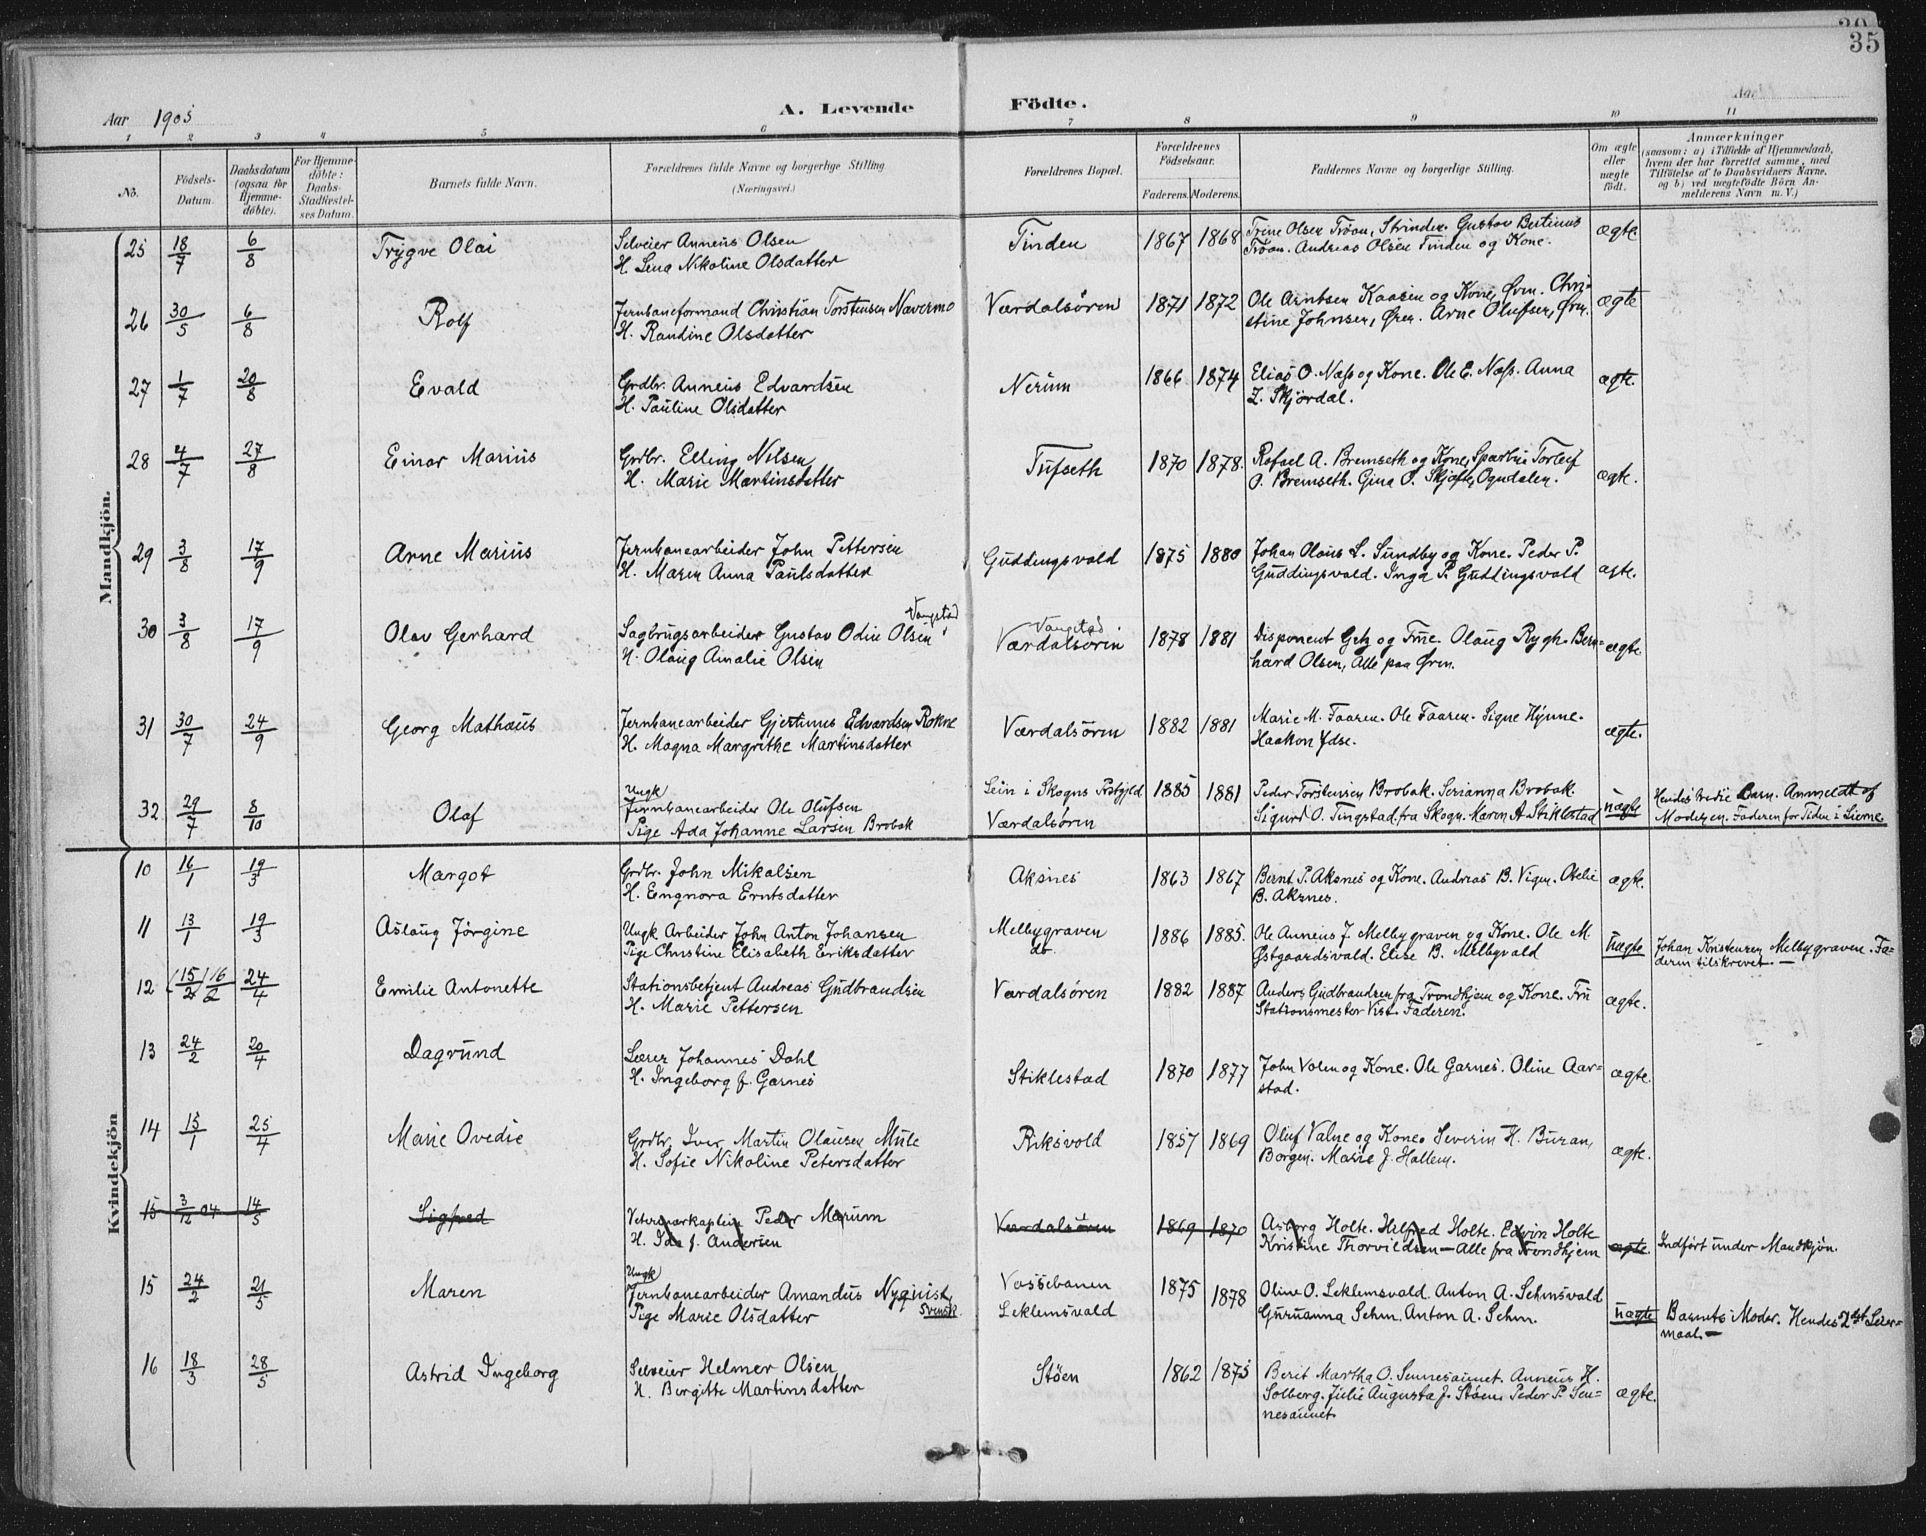 35
Aar 1905 A. Levende Födte.
1 2 3 4 5 6 7 8 9 10 11
No. Födsels-Datum. Daabsdatum (ogsaa for Hjemmedöbte). For Hjemmedöbte: Daabs-Stadfæstelses Datum. Barnets fulde Navn. Forældrenes fulde Navne og borgerlige Stilling (Næringsvei.) Forældrenes Bopæl. Forældrenes Födselsaar. Faderens. Moderens. Faddernes Navne og borgerlige Stilling. Om ægte eller uægte födt. Anmærkninger (saasom: a) i Tilfælde af Hjemmedaab, hvem der har forrettet samme, med Tilföielse af to Daabsvidners Navne, og b) ved uægtefödte Börn Anmelderens Navn m. V.)
Mandkjön.
25 18/7 6/8 Trygve Olai Selveier Anneus Olsen Tinden 1867 1868 Trine Olsen Trøan, Strinden. Gustav Bertinus ægte
H. Lena Nikoline Olsdatter Trøan. Andreas Olsen Tinden og Kone.
26 30/5 6/8 Rolf Jernbaneformand Christian Torstensen Navermo Værdalsören 1871 1872 Ole Arntsen Kaasen og Kone, Øren. Chri- ægte
H. Randine Olsdatter stine Johnsen, Øren. Arne Olufsen, Øren.
27 1/7 20/8 Evald Grdbr. Anneus Edvardsen Nerum 1866 1874 Elias O. Næss og Kone. Ole E. Næss. Anna ægte.
H. Pauline Olsdatter Z. Skjørdal.
28 4/7 27/8 Einar Marius Grdbr. Elling Nilsen Tufseth 1870 1878. Rafael A. Bremseth og Kone, Sparbu. Torleif ægte.
H. Marie Martinsdatter O. Bremseth. Gina O. Skjofte, Ogndalen.
29 3/8 17/9 Arne Marius Jernbanearbeider John Pettersen Guddingsvald 1875 1880 Johan Olaus L. Sundby og Kone. Peder P. ægte.
H. Maren Anna Paulsdatter Guddingsvald. Inga P. Guddingsvald
30 3/8 17/9 Olav Gerhard Sagbrugsarbeider Gustav Odin Olsen Vangstad Vangstad. Værdalsören 1878 1881 Disponent Getz og Frue. Olaug Rygh. Bern- ægte.
H. Olaug Amalie Olsen hard Olsen, Alle paa Øren.
31 30/7 24/9 Georg Mathæus Jernbanearbeider Gjertinus Edvardsen Rokne Værdalsören 1882 1881 Marie M. Faaren. Ole Faaren. Signe Hynne. ægte.
H. Magna Margrethe Martinsdatter Haakon Ydse.
32 29/7 8/10 Olaf Ungk Jernbanearbeider Ole Olufsen Sein i Skogns Prstgjeld 1885 1881 Peder Torstensen Brobak. Serianna Brobak. uægte Hendes tredie Barn. Anmeldt af
Pige Ada Johanne Larsen Brobak Værdalsören Sigurd O. Tingstad fra Skogn. Maren A Stiklestad Moderen. Faderen for Tiden i Lierne
Kvindekjön
10 16/1 19/3 Margot Grdbr. John Mikalsen Aksnes 1863 1867 Bernt P. Aksnes og Kone. Andreas B. Vigen. Otelie ægte.
H. Engnora Erntsdatter B. Aksnes.
11 13/1 19/3 Aslaug Jörgine Ungk Arbeider John Anton Johansen Melbygraven 1886 1885. Ole Anneus J. Melbygraven og Kone. Ole M. uægte Johan Kristensen Melbygraven. Fa-
Pige Christine Elisabeth Eriksdatter do. Østgaardsvald. Elise B. Melbyvald deren tilskrevet.—
12 (15/2) 16/2 24/4 Emilie Antonette Stationsbetjent Andreas Gudbrandsen Værdalsören 1882 1887 Anders Gudbrandsen fra Trondhjem og Kone. Fru ægte.
H. Marie Pettersen Stationsmester Vist. Faderen.
13 24/2 20/4 Dagrund Lærer Johannes Dahl Stiklestad 1870 1877 John Volen og Kone. Ole Garnes. Oline Aar- ægte.
H. Ingeborg f. Garnes stad.
14 15/1 25/4 Marie Ovedie Grdbr. Iver Martin Olausen Mule Riksvold 1857 1869 Oluf Valne og Kone. Severin H. Buran, ægte.
H. Sofie Nikoline Petersdatter Borgen. Marie J. Hallem.
15 3/12 04. 14/5 Sigfred Veterinærkaptein Peder Marum Værdalsören 1869 1870 Asborg Holte. Helfred Holte. Edvin Holte ægte. Indfört under Mandkjön.
H. Ida f. Andersen Kristine Thorvildsen — Alle fra Trondhjem
15 24/2 21/5 Maren Ungk Jernbanearbeider Amandus Nyquist, Svensk. Vossebanen 1875 1878 Oline O. Leklemsvald. Anton A. Sehmsvald uægte Barnets Moder. Hendes 2det Leier-
Pige Marie Olsdatter Leklemsvald Guruanna Sehm. Anton A. Sehm. maal.—
16 18/3 28/5 Astrid Ingeborg Selveier Helmer Olsen Støen 1862 1875 Berit Martha O. Sennesaunet. Anneus H. ægte.
H. Birgitte Martinsdatter Solberg. Julie Augusta J. Støen. Peder P. Sen-
nesaunet.